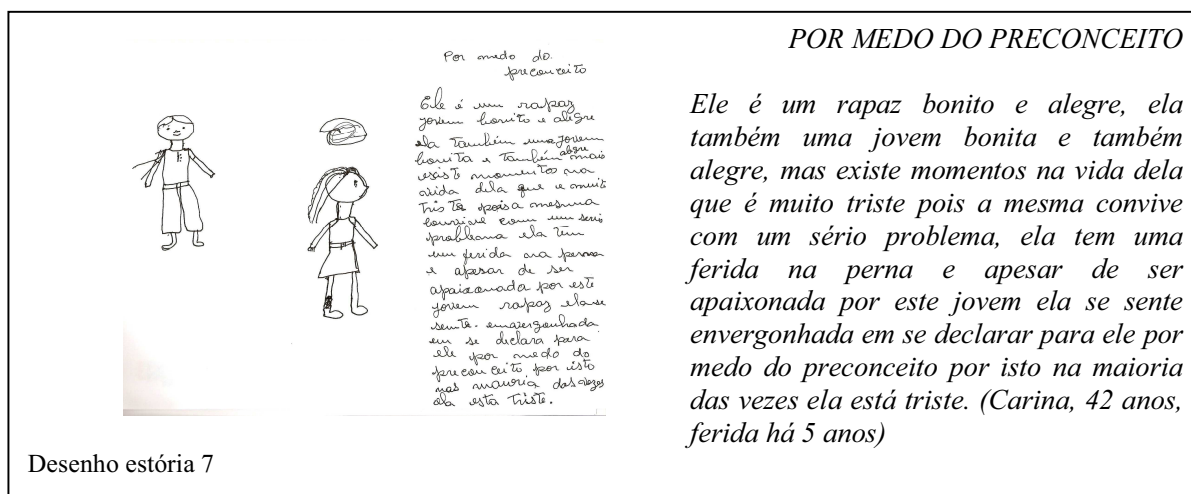 Por medo do
preconceito
Ele é um rapaz
jovem bonito e alegre
ela também uma jovem
bonita e também alegre mais
existe momentos na
vida dela que e muito
triste pois a mesma
convive com um serio
problema ela tem
um ferida na perna
e apesar de ser
apaixonada por este
jovem rapaz ela se
sente envergonhada
em se declara para
ele por medo do
preconceito por isto
nas mauria das vezes
ela esta triste.
POR MEDO DO PRECONCEITO
Ele é um rapaz bonito e alegre, ela
também uma jovem bonita e também
alegre, mas existe momentos na vida dela
que é muito triste pois a mesma convive
com um sério problema, ela tem uma
ferida na perna e apesar de ser
apaixonada por este jovem ela se sente
envergonhada em se declarar para ele por
medo do preconceito por isto na maioria
das vezes ela está triste. (Carina, 42 anos,
ferida há 5 anos)
Desenho estória 7